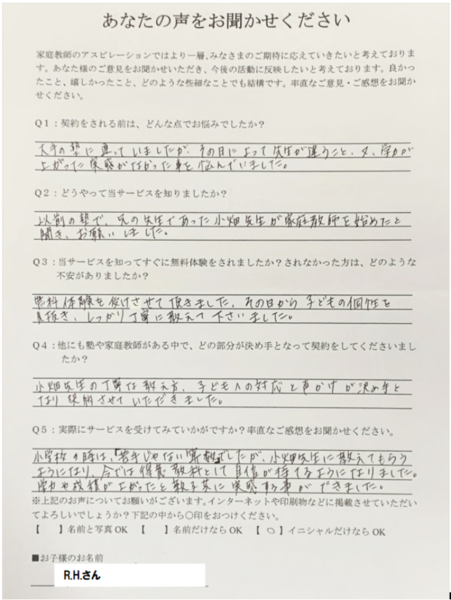 あなたの声をお聞かせください
家庭教師のアスピレーションではより一層、みなさまのご期待に応えていきたいと考えておりま
す。あなた様のご意見をお聞かせいただき、今後の活動に反映したいと考えております。良かっ
たこと、嬉しかったこと、どのような些細なことでも結構です。率直なご意見・ご感想をお聞か
せください。
Q1：契約をされる前は、どんな点でお悩みでしたか？
大手の塾に通っていましたが、その日によって先生が違うこと、又、学力が
上がった実感がなかった事を悩んでいました。
Q2：どうやって当サービスを知りましたか？
以前の塾で、兄の先生であった小畑先生が家庭教師を始めたと
聞き、お願いしました。
Q3：当サービスを知ってすぐに無料体験をされましたか？されなかった方は、どのような
不安がありましたか？
無料体験を受けさせて頂きました。その日から子どもの個性を
見抜き、しっかり丁寧に教えて下さいました。
Q4：他にも塾や家庭教師がある中で、どの部分が決め手となって契約をしてくださいまし
たか？
小畑先生の丁寧な教え方、子どもへの対応と声かけが決め手と
なり契約させていただきました。
Q5：実際にサービスを受けてみていかがですか？率直なご感想をお聞かせください。
小学校の時は、"苦手じゃない算数"でしたが、小畑先生に教えてもらう
ようになり、今では得意教科として自信が持てるようになりました。
学力や成績が上がったと親子共に実感する事ができました。
※上記のお声についてお願いがございます。インターネットや印刷物などに掲載させていただい
てよろしいでしょうか？下記の中から〇印をおつけください。
【　】名前と写真OK　【　】名前だけならOK　【○】イニシャルだけならOK
■お子様のお名前
R.H.さん